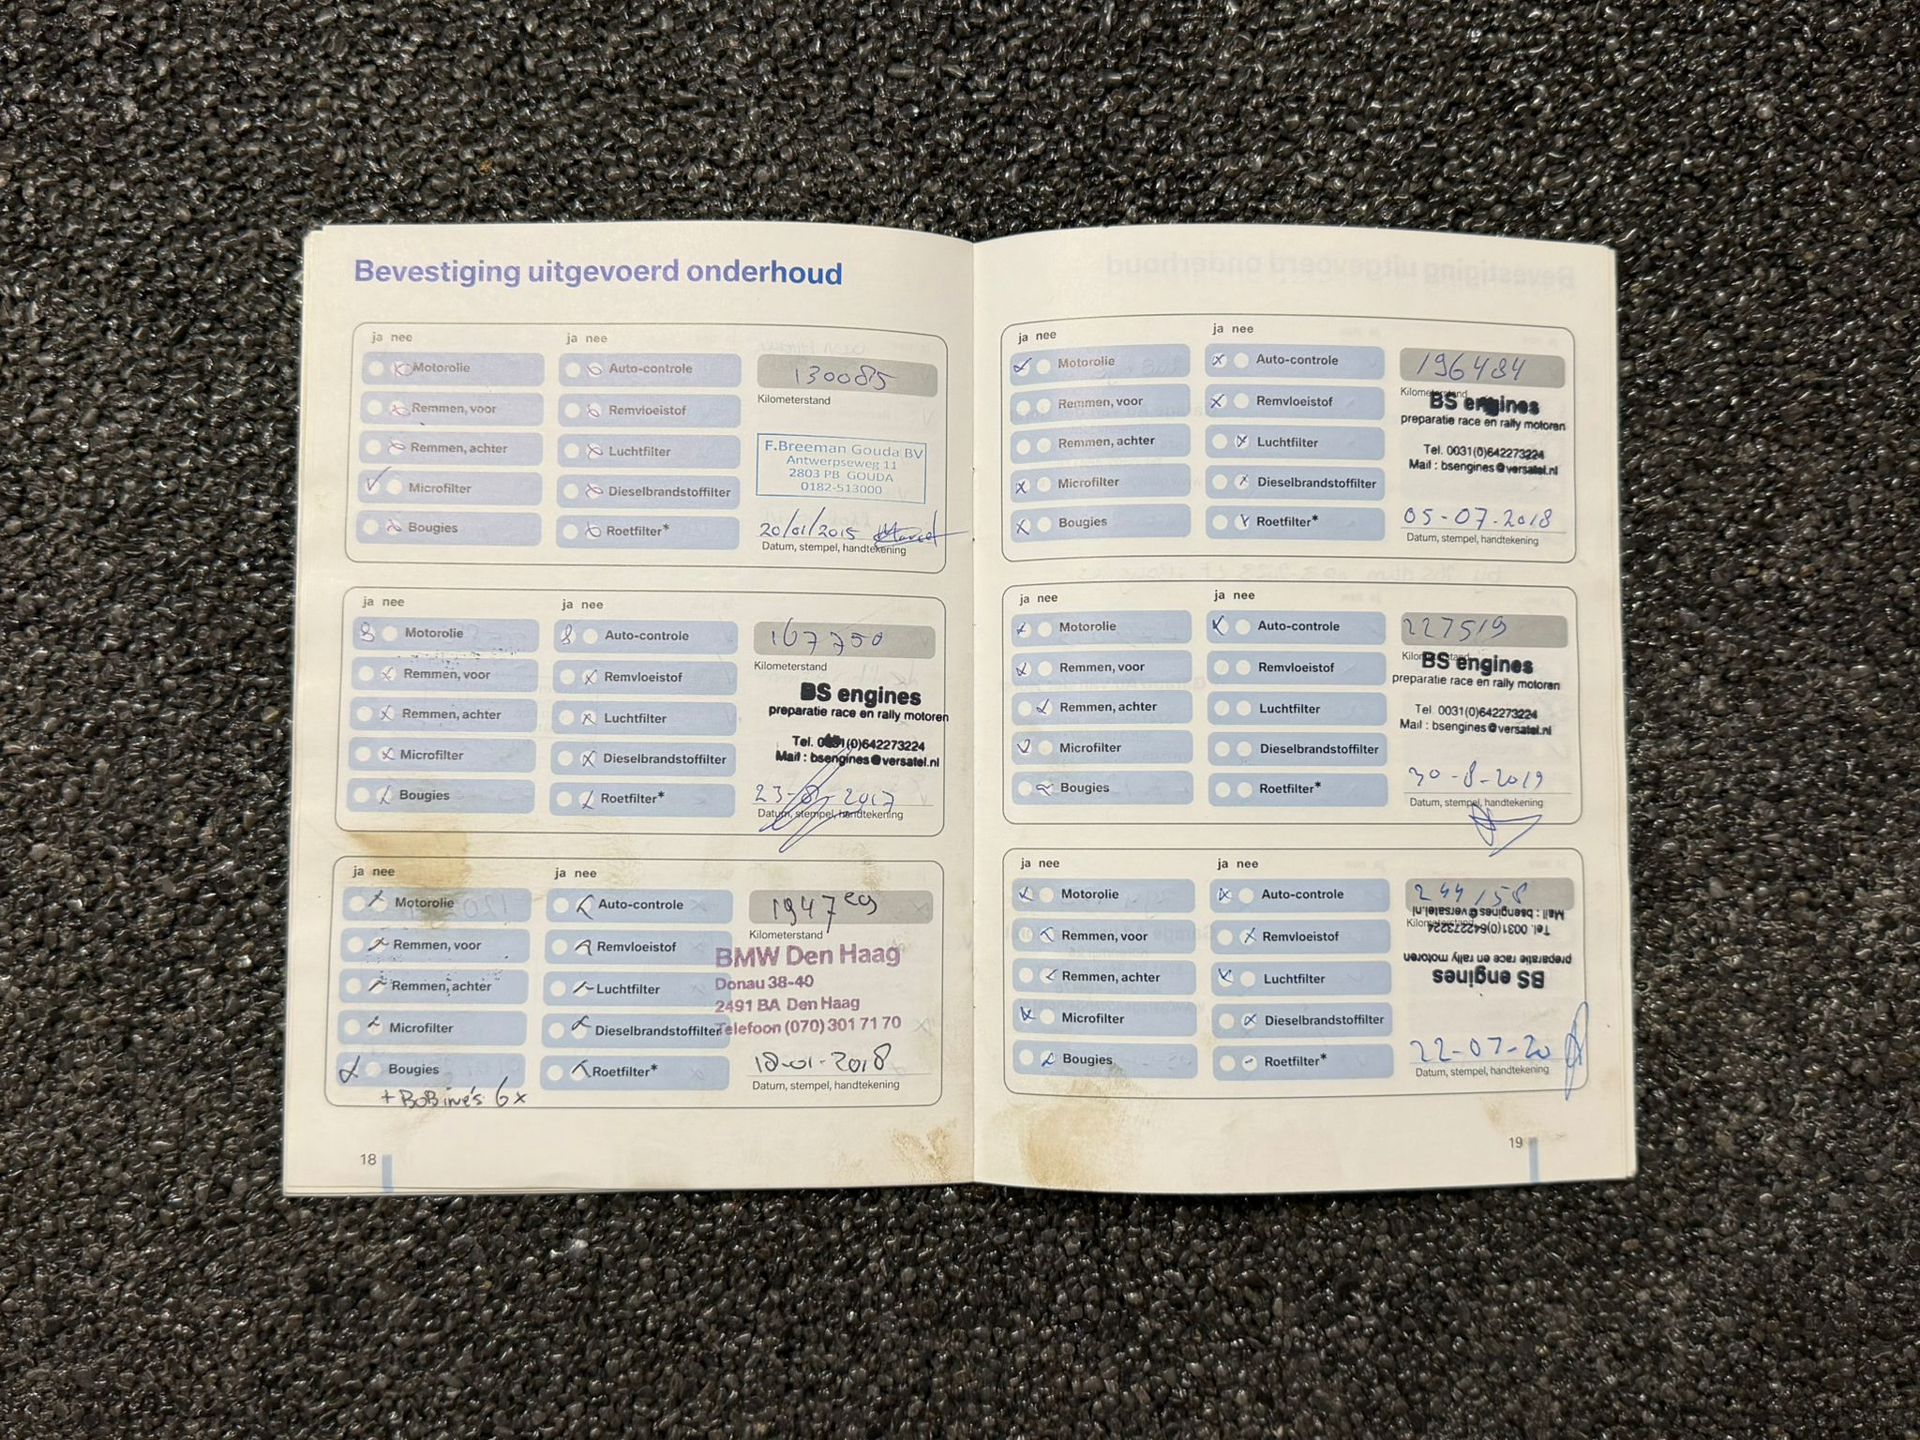 Bevestiging uitgevoerd onderhoud
ja nee
ja nee
Motorolie
Auto-controle
130085
Kilometerstand
Remmen, voor
Remvloeistof
Remmen, achter
Luchtfilter
F.Breeman Gouda BV
Antwerpseweg 11
2803 PB GOUDA
0182-513000
Microfilter
Dieselbrandstoffilter
Bougies
Roetfilter*
20/01/2015
Datum, stempel, handtekening
ja nee
ja nee
Motorolie
Auto-controle
167750
Kilometerstand
Remmen, voor
Remvloeistof
BS engines
preparatie race en rally motoren
Remmen, achter
Luchtfilter
Tel. 0031(0)642273224
Mail : bsengines@versatel.nl
Microfilter
Dieselbrandstoffilter
Bougies
Roetfilter*
Datum, stempel, handtekening
ja nee
ja nee
Motorolie
Auto-controle
Kilometerstand
Remmen, voor
Remvloeistof
BMW Den Haag
Donau 38-40
2491 BA Den Haag
Telefoon (070) 301 71 70
Remmen, achter
Luchtfilter
Microfilter
Dieselbrandstoffilter
Bougies
Roetfilter*
18-01-2018
Datum, stempel, handtekening
+ BoBine's 6x
18
ja nee
ja nee
Motorolie
Auto-controle
196484
Kilometerstand
Remmen, voor
Remvloeistof
BS engines
preparatie race en rally motoren
Remmen, achter
Luchtfilter
Tel. 0031(0)642273224
Mail : bsengines@versatel.nl
Microfilter
Dieselbrandstoffilter
Bougies
Roetfilter*
05-07-2018
Datum, stempel, handtekening
ja nee
ja nee
Motorolie
Auto-controle
227519
Remmen, voor
Remvloeistof
BS engines
preparatie race en rally motoren
Remmen, achter
Luchtfilter
Tel 0031(0)642273224
Mail : bsengines@versatel.nl
Microfilter
Dieselbrandstoffilter
Bougies
Roetfilter*
30-8-2019
Datum, stempel, handtekening
ja nee
ja nee
Motorolie
Auto-controle
244158
Remmen, voor
Remvloeistof
BS engines
preparatie race en rally motoren
Tel. 0031(0)642273224
Mail : bsengines@versatel.nl
Remmen, achter
Luchtfilter
Microfilter
Dieselbrandstoffilter
Bougies
Roetfilter*
22-07-20
Datum, stempel, handtekening
19